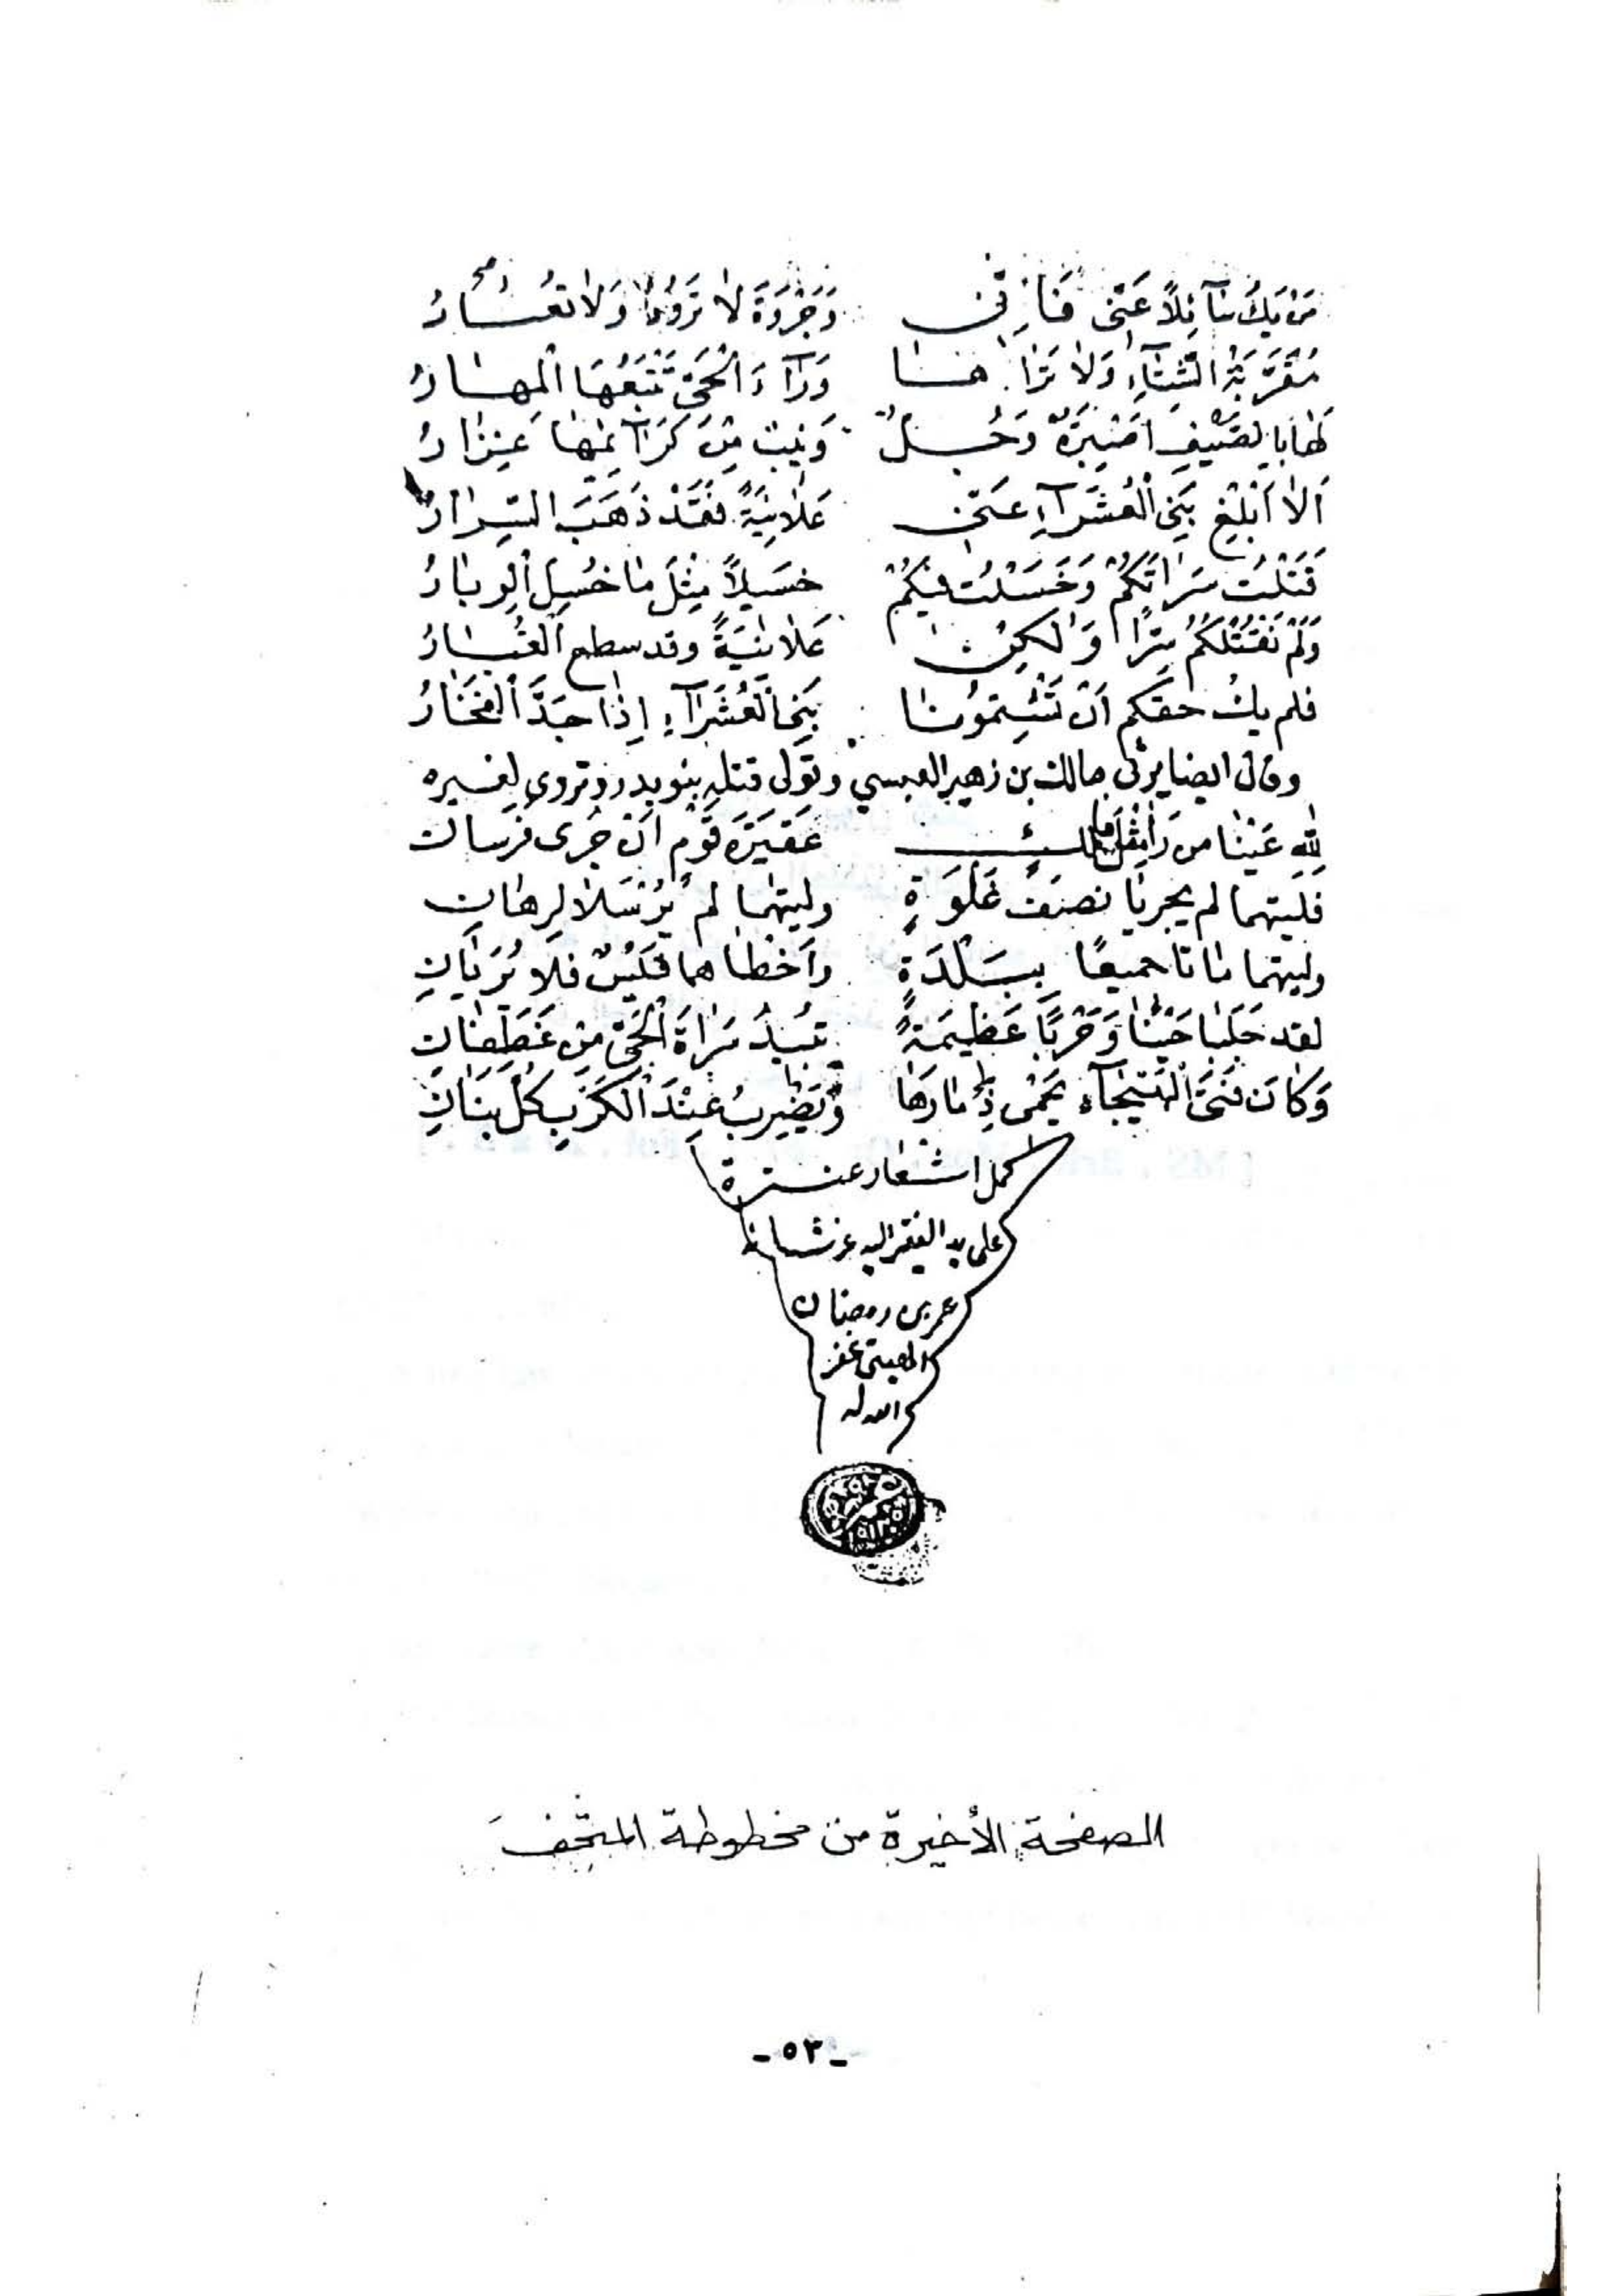 مَنْ يَكُ سَآئِلاً عَنِّى فَاِنِّى وَجَرْوَةَ لاَ تَرُودُ وَلاَ تُعَارُ
مُقَرَّبَةُ الشِّتَآءِ وَلاَ تَرَاهَا وَرَآءَ الْحَىِّ تَتْبَعُهَا الْمِهَارُ
لَهَا بِالصَّيْفِ اَصْبِرَةٌ وَجُلٌّ وَنِيبٌ مِنْ كَرَآئِمِهَا غِزَارُ
اَلاَ اَبْلِغْ بَنِى الْعُشَرَآءِ عَنِّى عَلاَنِيَةً فَقَدْ ذَهَبَ السِّرَارُ
قَتَلْتُ سَرَاتَكُمْ وَخَسَلْتُ مِنْكُمْ خَسِيلاً مِثْلَ مَا خُسِلَ الْوِبَارُ
وَلَمْ نَقْتُلْكُمُ سِرًّا وَلٰكِنْ عَلاَنِيَةً وقد سطع الْغُبَارُ
فلم يك حقكم اَنْ تَشْتِمُونَا بَنِى الْعُشَرَآءِ اِذَا جَدَّ الْفَخَارُ
وقال ايضا يرثى مالك بن زهير العبسي وتولى قتله بنو بدر وتروى لغيره
لِلّٰهِ عَيْنَا من رَاَى مِثْلَ مَالِكٍ عَقِيرَةَ قَوْمٍ اَنْ جَرَى فَرَسَانِ
فليتهما لم يجريا نصف غَلْوَةٍ وليتهما لَمْ يُرْسَلاَ لِرِهَانِ
وليتهما مَاتَا جميعًا بِبَلْدَةٍ وَاَخْطَاهما قَيْسٌ فَلاَ يُرَيَانِ
لقد جَلَبَا حَيْنًا وَحَرْبًا عَظِيمَةً تُبِيدُ سَرَاةَ الْحَىِّ مِنْ غَطَفَانِ
وَكَانَ فَتَى الْهَيْجَآءِ يَحْمِى ذِمَارَهَا وَيَضْرِبُ عِنْدَ الْكَرْبِ كُلَّ بَنَانِ
كمل اشعار عنترة
على يد الفقير اليه عز شانه
عمر بن رمضان
الهيتى غفر
الله له
الصفحة الأخيرة من مخطوطة المتحف
- ٥٣ -